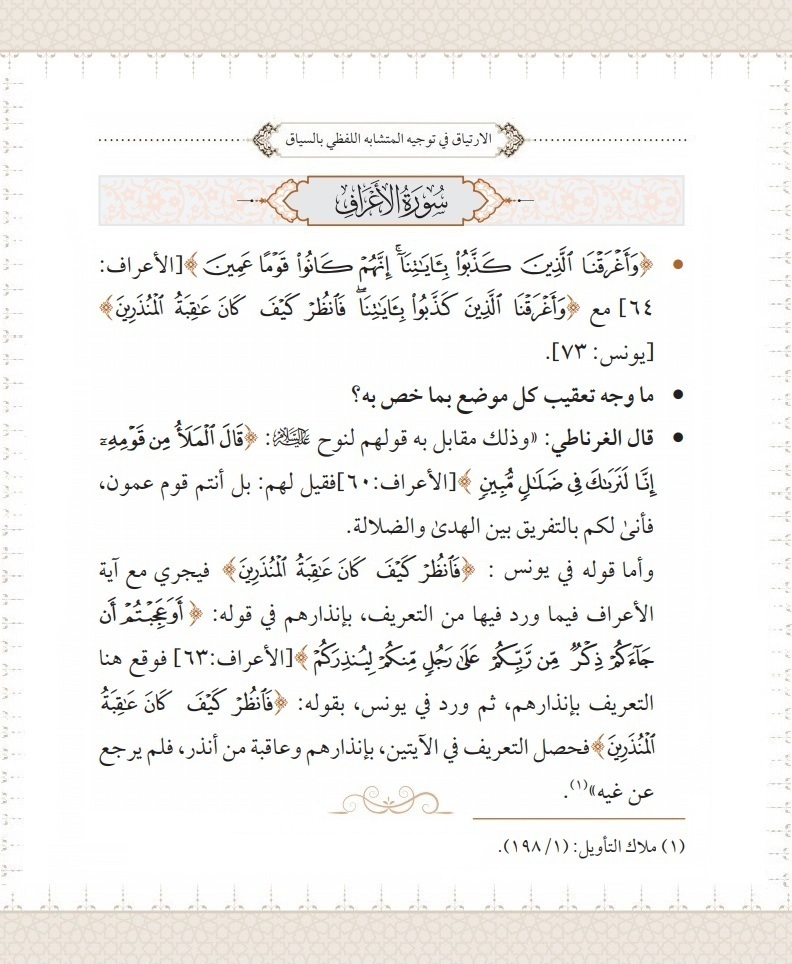 الارتياق في توجيه المتشابه اللفظي بالسياق
سُورَةُ الأَعْرَافِ
• ﴿وَأَغۡرَقۡنَا ٱلَّذِينَ كَذَّبُواْ بِـَٔايَٰتِنَآۚ إِنَّهُمۡ كَانُواْ قَوۡمًا عَمِينَ﴾ [الأعراف:
٦٤] مع ﴿وَأَغۡرَقۡنَا ٱلَّذِينَ كَذَّبُواْ بِـَٔايَٰتِنَاۖ فَٱنظُرۡ كَيۡفَ كَانَ عَٰقِبَةُ ٱلۡمُنذَرِينَ﴾
[يونس: ٧٣].
• ما وجه تعقيب كل موضع بما خص به؟
• قال الغرناطي: «وذلك مقابل به قولهم لنوح عليه السلام: ﴿قَالَ ٱلۡمَلَأُ مِن قَوۡمِهِۦٓ
إِنَّا لَنَرَىٰكَ فِي ضَلَٰلٖ مُّبِينٖ﴾ [الأعراف:٦٠] فقيل لهم: بل أنتم قوم عمون،
فأنىٰ لكم بالتفريق بين الهدىٰ والضلالة.
وأما قوله في يونس : ﴿فَٱنظُرۡ كَيۡفَ كَانَ عَٰقِبَةُ ٱلۡمُنذَرِينَ﴾ فيجري مع آية
الأعراف فيما ورد فيها من التعريف، بإنذارهم في قوله: ﴿أَوَعَجِبۡتُمۡ أَن
جَآءَكُمۡ ذِكۡرٞ مِّن رَّبِّكُمۡ عَلَىٰ رَجُلٖ مِّنكُمۡ لِيُنذِرَكُمۡ﴾ [الأعراف:٦٣] فوقع هنا
التعريف بإنذارهم، ثم ورد في يونس، بقوله: ﴿فَٱنظُرۡ كَيۡفَ كَانَ عَٰقِبَةُ
ٱلۡمُنذَرِينَ﴾ فحصل التعريف في الآيتين، بإنذارهم وعاقبة من أنذر، فلم يرجع
عن غيه»(١).
(١) ملاك التأويل: (١/ ١٩٨).